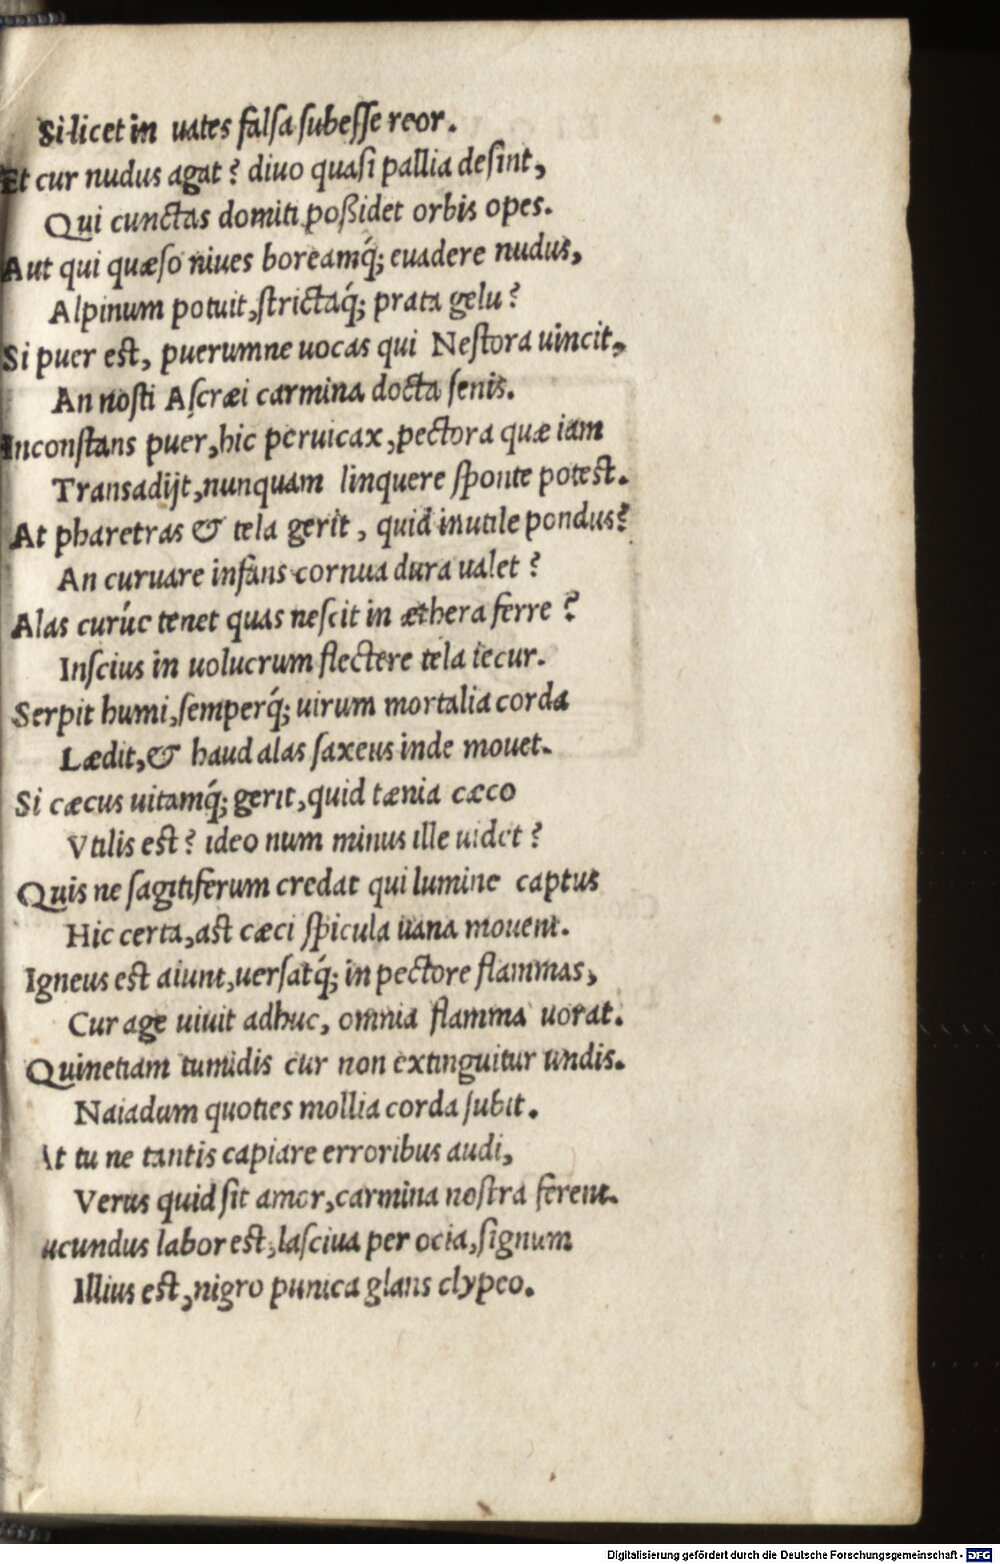 Si licet in uates falſa ſubeſſe reor.
Et cur nudus agat? diuo quaſi pallia deſint,
Qui cunctas domiti poßidet orbis opes.
Aut qui quæſo niues boreamq́; euadere nudus,
Alpinum potuit, ſtrictaq́; prata gelu?
Si puer eſt, puerumne uocas qui Neſtora uincit,
An noſti Aſcræi carmina docta ſenis.
Inconſtans puer, hic peruicax, pectora quæ iam
Transadijt, nunquam linquere ſponte poteſt.
At pharetras & tela gerit, quid inutile pondus?
An curuare infans cornua dura ualet?
Alas curúe tenet quas neſcit in æthera ferre?
Inſcius in uolucrum flectere tela iecur.
Serpit humi, ſemperq́; uirum mortalia corda
Lædit, & haud alas ſaxeus inde mouet.
Si cæcus uitamq́; gerit, quid tænia cæco
Vtilis eſt? ideo num minus ille uidet?
Quis ne ſagittiferum credat qui lumine captus
Hic certa, aſt cæci ſpicula uana mouent.
Igneus eſt aiunt, uerſatq́; in pectore flammas,
Cur age uiuit adhuc, omnia flamma uorat.
Quinetiam tumidis cur non extinguitur undis.
Naiadum quoties mollia corda ſubit.
At tu ne tantis capiare erroribus audi,
Verus quid ſit amor, carmina noſtra ferent.
ucundus labor eſt, laſciua per ocia, ſignum
Illius eſt, nigro punica glans clypeo.
Digitalisierung gefördert durch die Deutsche Forschungsgemeinschaft - DFG